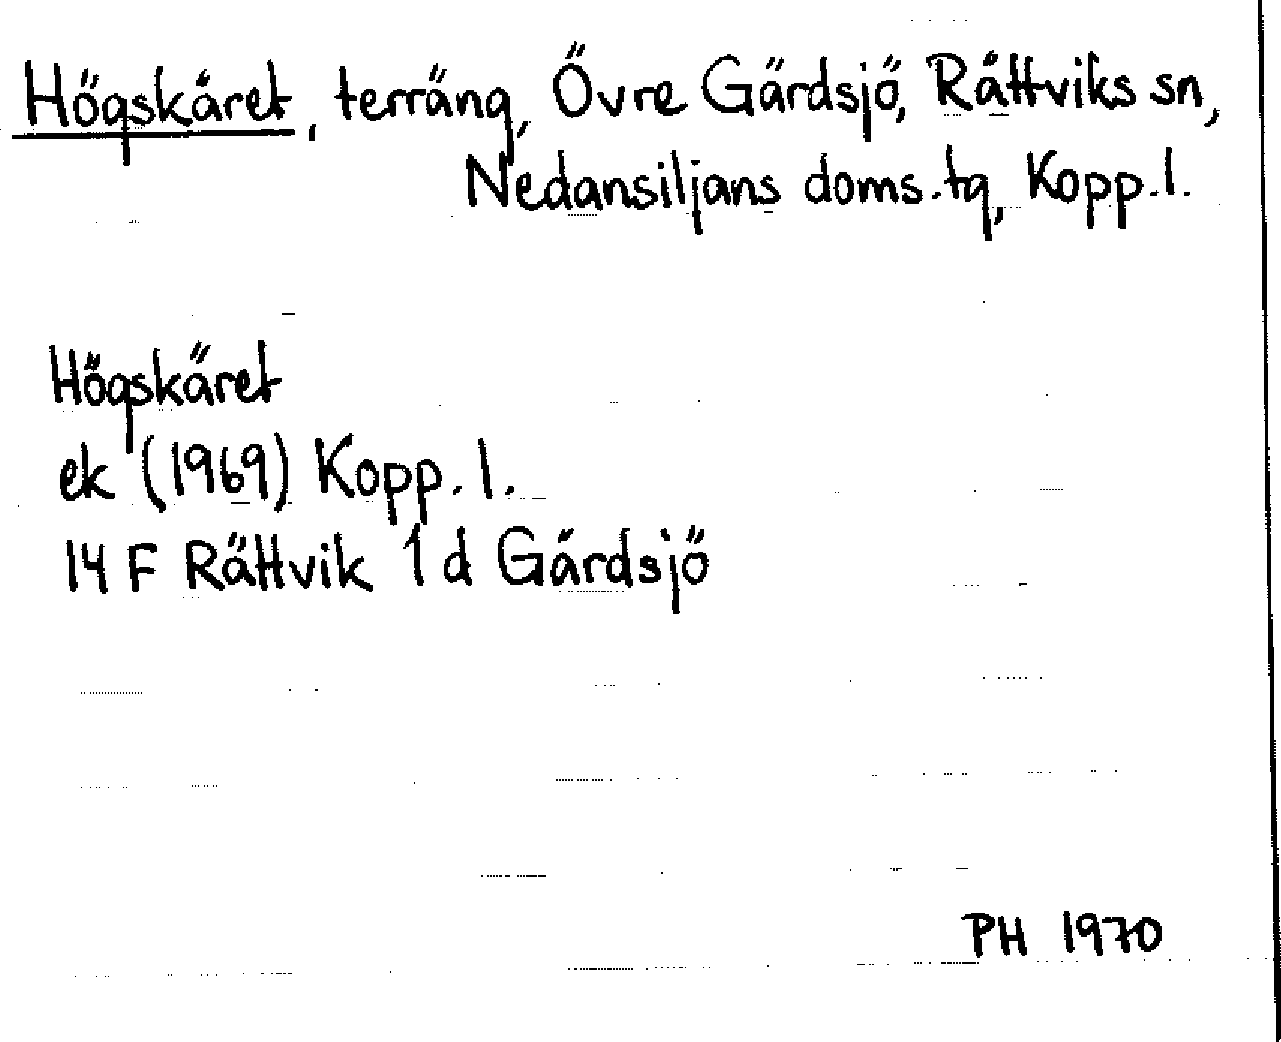 Högskäret, terräng, Övre Gärdsjö, Rättviks sn,
Nedansiljans doms.tg, Kopp.l.
Högskäret
ek (1969) Kopp.l.
14 F Rättvik 1 d Gärdsjö
PH 1970